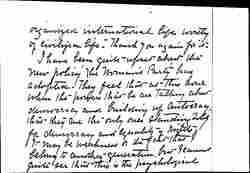 organized international life worthy
of civilized life - Thank you again for it.
I have been quite upset about the
new policy the Woman's Party has
adopted. They feel that at this hour
when the powers that be are talking about
democracy and building up autocracy
that they are the only ones standing solidly
for democracy and equality & rights
It may be weakness or
belong to another generation but I cannot
quite see this. This is the psychological